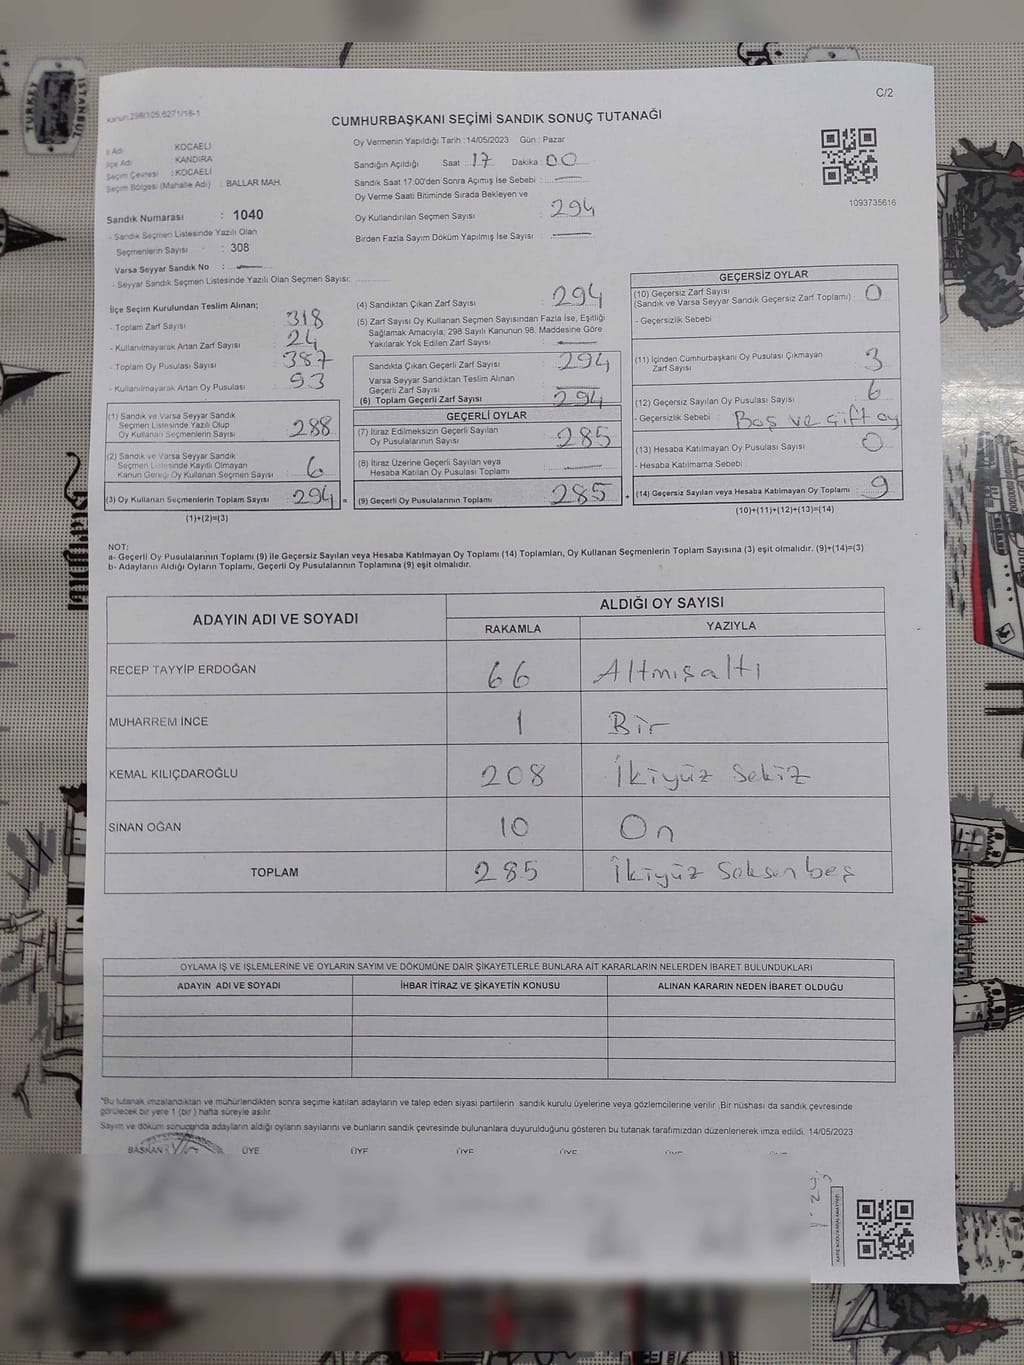 C/2
Kanun:298/105,6271/18-1
CUMHURBAŞKANI SEÇİMİ SANDIK SONUÇ TUTANAĞI
İl Adı KOCAELİ
İlçe Adı KANDIRA
Seçim Çevresi : KOCAELİ
Seçim Bölgesi (Mahalle Adı) : BALLAR MAH.
Sandık Numarası : 1040
- Sandık Seçmen Listesinde Yazılı Olan
Seçmenlerin Sayısı : 308
Varsa Seyyar Sandık No :
- Seyyar Sandık Seçmen Listesinde Yazılı Olan Seçmen Sayısı:
Oy Vermenin Yapıldığı Tarih : 14/05/2023 Gün : Pazar
Sandığın Açıldığı Saat 17 Dakika : 00
Sandık Saat 17:00'den Sonra Açımış İse Sebebi :
Oy Verme Saati Bitiminde Sırada Bekleyen ve
Oy Kullandırılan Seçmen Sayısı : 294
Birden Fazla Sayım Döküm Yapılmış İse Sayısı :
1093735616
İlçe Seçim Kurulundan Teslim Alınan;
- Toplam Zarf Sayısı 318
- Kullanılmayarak Artan Zarf Sayısı 24
- Toplam Oy Pusulası Sayısı 387
- Kullanılmayarak Artan Oy Pusulası 93
(1) Sandık ve Varsa Seyyar Sandık
Seçmen Listesinde Yazılı Olup
Oy Kullanan Seçmenlerin Sayısı 288
(2) Sandık ve Varsa Seyyar Sandık
Seçmen Listesinde Kayıtlı Olmayan
Kanun Gereği Oy Kullanan Seçmen Sayısı 6
(3) Oy Kullanan Seçmenlerin Toplam Sayısı 294 =
(1)+(2)=(3)
(4) Sandıktan Çıkan Zarf Sayısı : 294
(5) Zarf Sayısı Oy Kullanan Seçmen Sayısından Fazla İse, Eşitliği
Sağlamak Amacıyla; 298 Sayılı Kanunun 98. Maddesine Göre
Yakılarak Yok Edilen Zarf Sayısı :
Sandıkta Çıkan Geçerli Zarf Sayısı : 294
Varsa Seyyar Sandıktan Teslim Alınan
Geçerli Zarf Sayısı :
(6) Toplam Geçerli Zarf Sayısı : 294
GEÇERLİ OYLAR
(7) İtiraz Edilmeksizin Geçerli Sayılan
Oy Pusulalarının Sayısı : 285
(8) İtiraz Üzerine Geçerli Sayılan veya
Hesaba Katılan Oy Pusulası Toplamı :
(9) Geçerli Oy Pusulalarının Toplamı : 285 +
GEÇERSİZ OYLAR
(10) Geçersiz Zarf Sayısı
(Sandık ve Varsa Seyyar Sandık Geçersiz Zarf Toplamı) : 0
- Geçersizlik Sebebi
(11) İçinden Cumhurbaşkanı Oy Pusulası Çıkmayan
Zarf Sayısı : 3
(12) Geçersiz Sayılan Oy Pusulası Sayısı : 6
- Geçersizlik Sebebi : Boş ve çift oy
(13) Hesaba Katılmayan Oy Pusulası Sayısı : 0
- Hesaba Katılmama Sebebi :
(14) Geçersiz Sayılan veya Hesaba Katılmayan Oy Toplamı : 9
(10)+(11)+(12)+(13)=(14)
NOT:
a- Geçerli Oy Pusulalarının Toplamı (9) ile Geçersiz Sayılan veya Hesaba Katılmayan Oy Toplamı (14) Toplamları, Oy Kullanan Seçmenlerin Toplam Sayısına (3) eşit olmalıdır. (9)+(14)=(3)
b- Adayların Aldığı Oyların Toplamı, Geçerli Oy Pusulalarının Toplamına (9) eşit olmalıdır.
ADAYIN ADI VE SOYADI ALDIĞI OY SAYISI
RAKAMLA YAZIYLA
RECEP TAYYİP ERDOĞAN 66 Altmışaltı
MUHARREM İNCE 1 Bir
KEMAL KILIÇDAROĞLU 208 İkiyüz Sekiz
SİNAN OĞAN 10 On
TOPLAM 285 İkiyüz Seksenbeş
OYLAMA İŞ VE İŞLEMLERİNE VE OYLARIN SAYIM VE DÖKÜMÜNE DAİR ŞİKAYETLERLE BUNLARA AİT KARARLARIN NELERDEN İBARET BULUNDUKLARI
ADAYIN ADI VE SOYADI İHBAR İTİRAZ VE ŞİKAYETİN KONUSU ALINAN KARARIN NEDEN İBARET OLDUĞU
*Bu tutanak imzalandıktan ve mühürlendikten sonra seçime katılan adayların ve talep eden siyasi partilerin sandık kurulu üyelerine veya gözlemcilerine verilir. Bir nüshası da sandık çevresinde
görülecek bir yere 1 (bir) hafta süreyle asılır.
Sayım ve döküm sonucunda adayların aldığı oyların sayılarını ve bunların sandık çevresinde bulunanlara duyurulduğunu gösteren bu tutanak tarafımızdan düzenlenerek imza edildi. 14/05/2023
BAŞKAN ÜYE ÜYE ÜYE ÜYE ÜYE
TURKEY
İSTANBUL
İstanbul